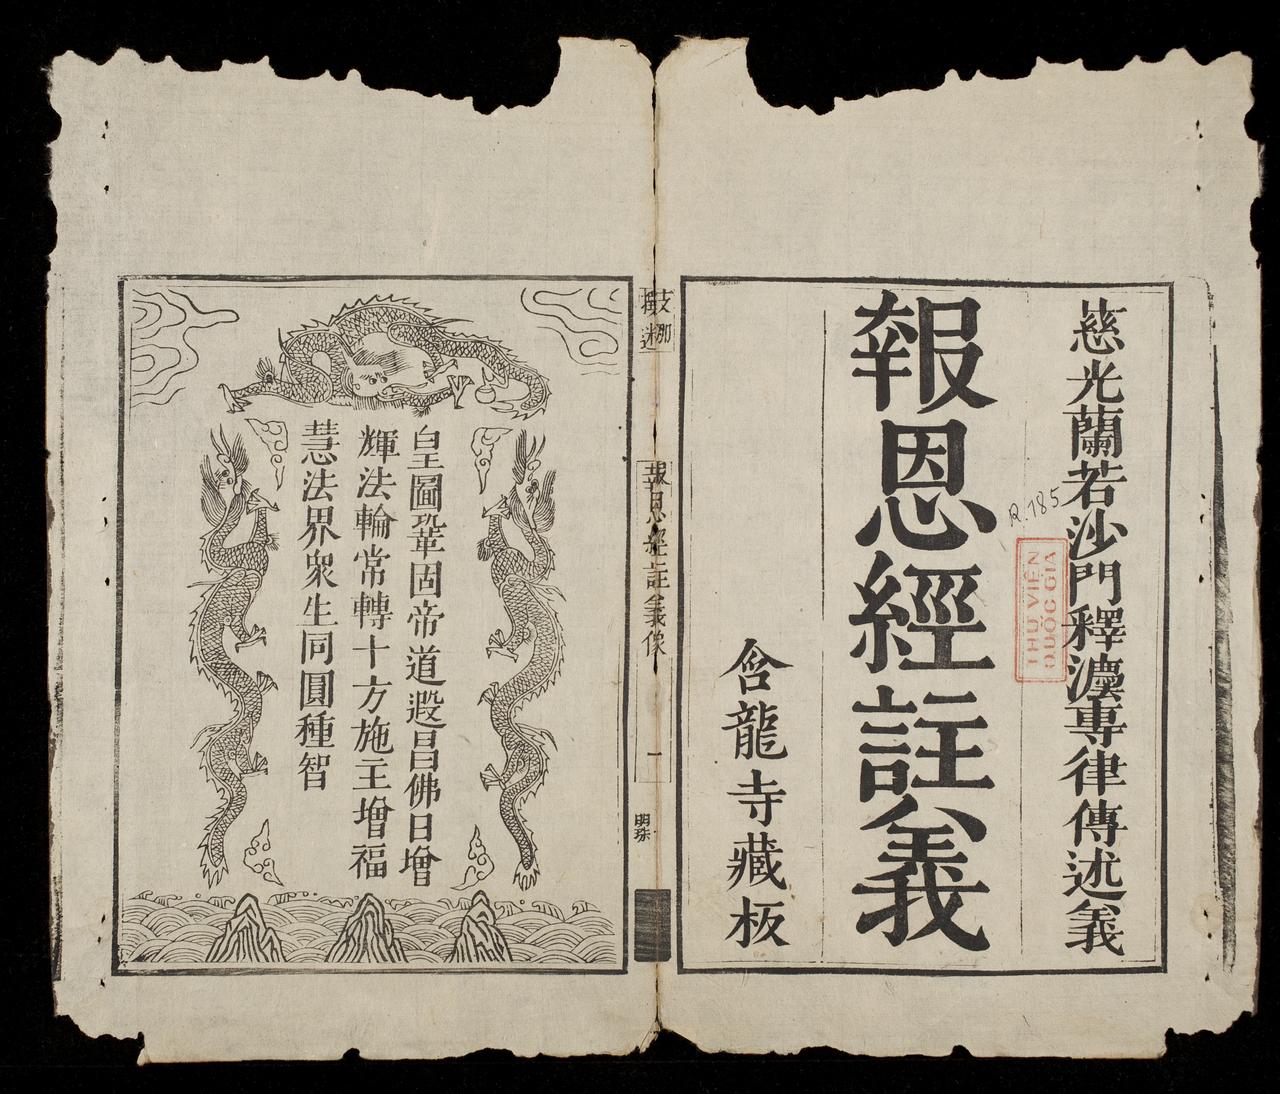 慈光蘭若沙門釋灋專律傳述義
報恩經註義
含龍寺藏板
R.785
THƯ VIỆN
QUỐC GIA
報恩經註義像
一
明珠
皇圖鞏固帝道遐昌佛日增
輝法輪常轉十方施主增福
慧法界衆生同圓種智